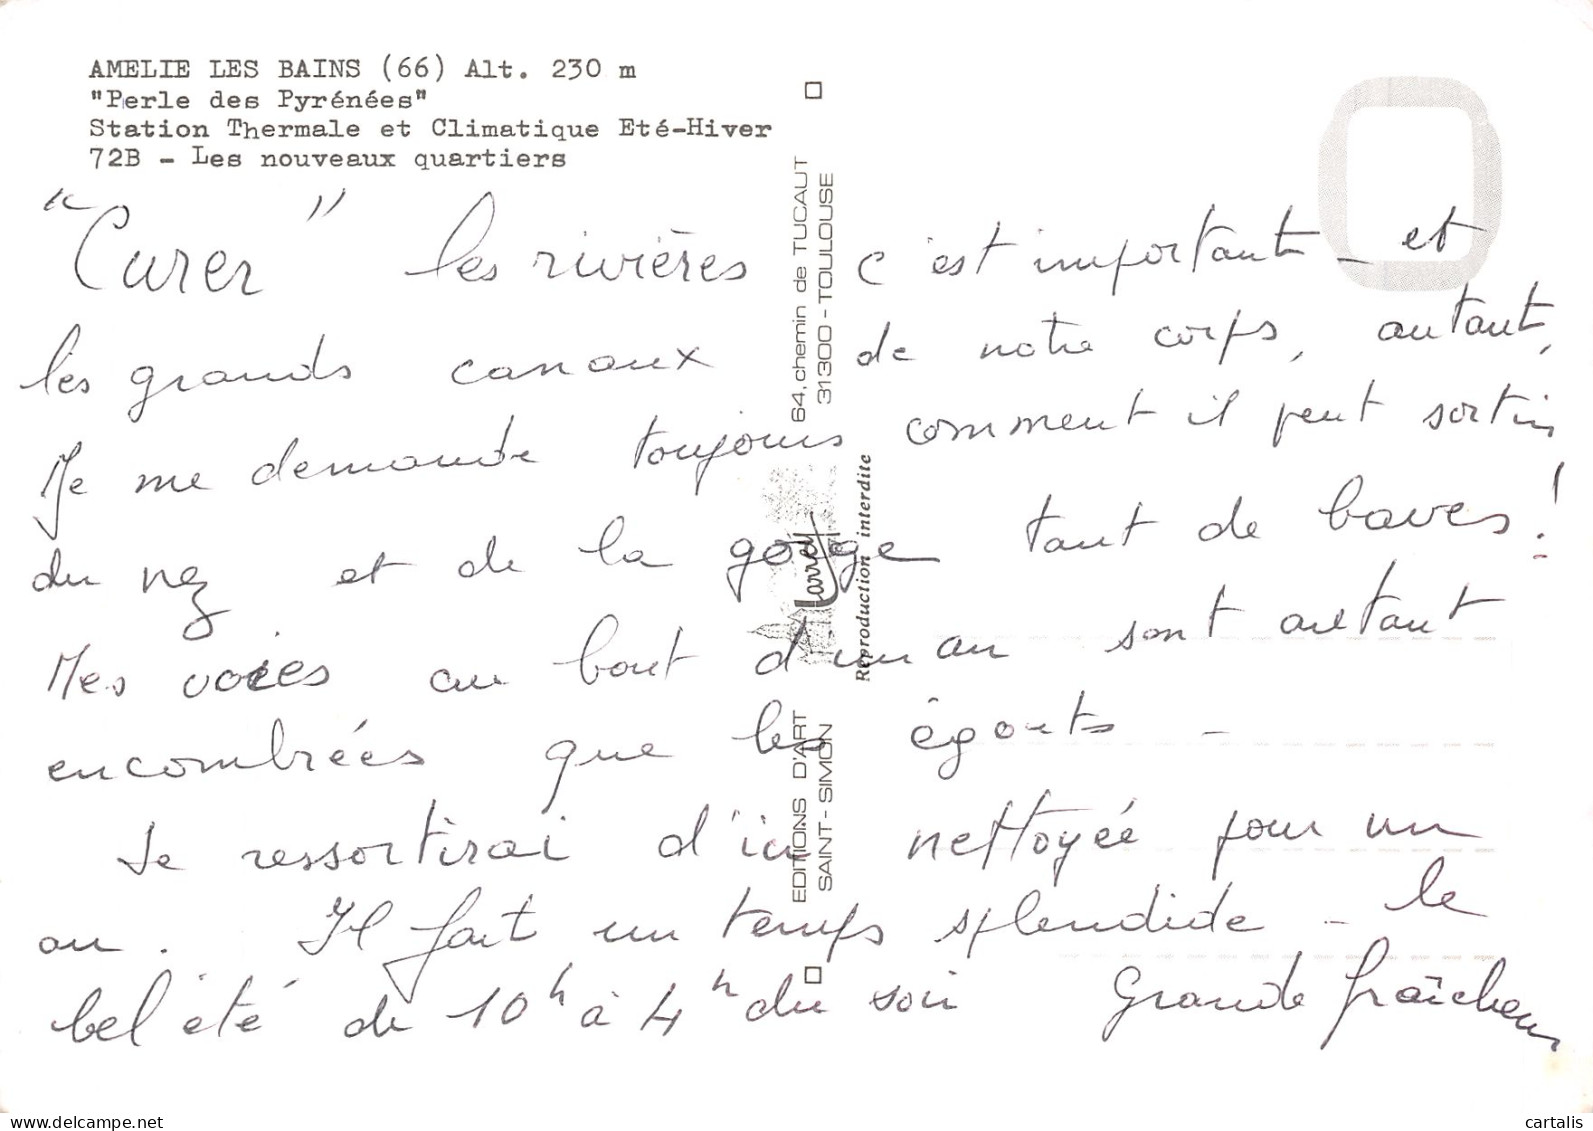 AMELIE LES BAINS (66) Alt. 230 m
"Perle des Pyrénées"
Station Thermale et Climatique Eté-Hiver
72B - Les nouveaux quartiers
"Curer" les rivières c'est important - et
les grands canaux de notre corps, autant,
Je me demande toujours comment il peut sortir
du nez et de la gorge tant de baves!
Mes voies au bout d'un an sont autant
encombrées que les égouts -
Je ressortirai d'ici nettoyée pour un
an. Il fait un temps splendide - le
bel été de 10h à 4h du soir Grande fraîcheur
EDITIONS D'ART Larrey 64, chemin de TUCAUT
SAINT-SIMON 31300 - TOULOUSE
Reproduction interdite
www.delcampe.net
cartalis